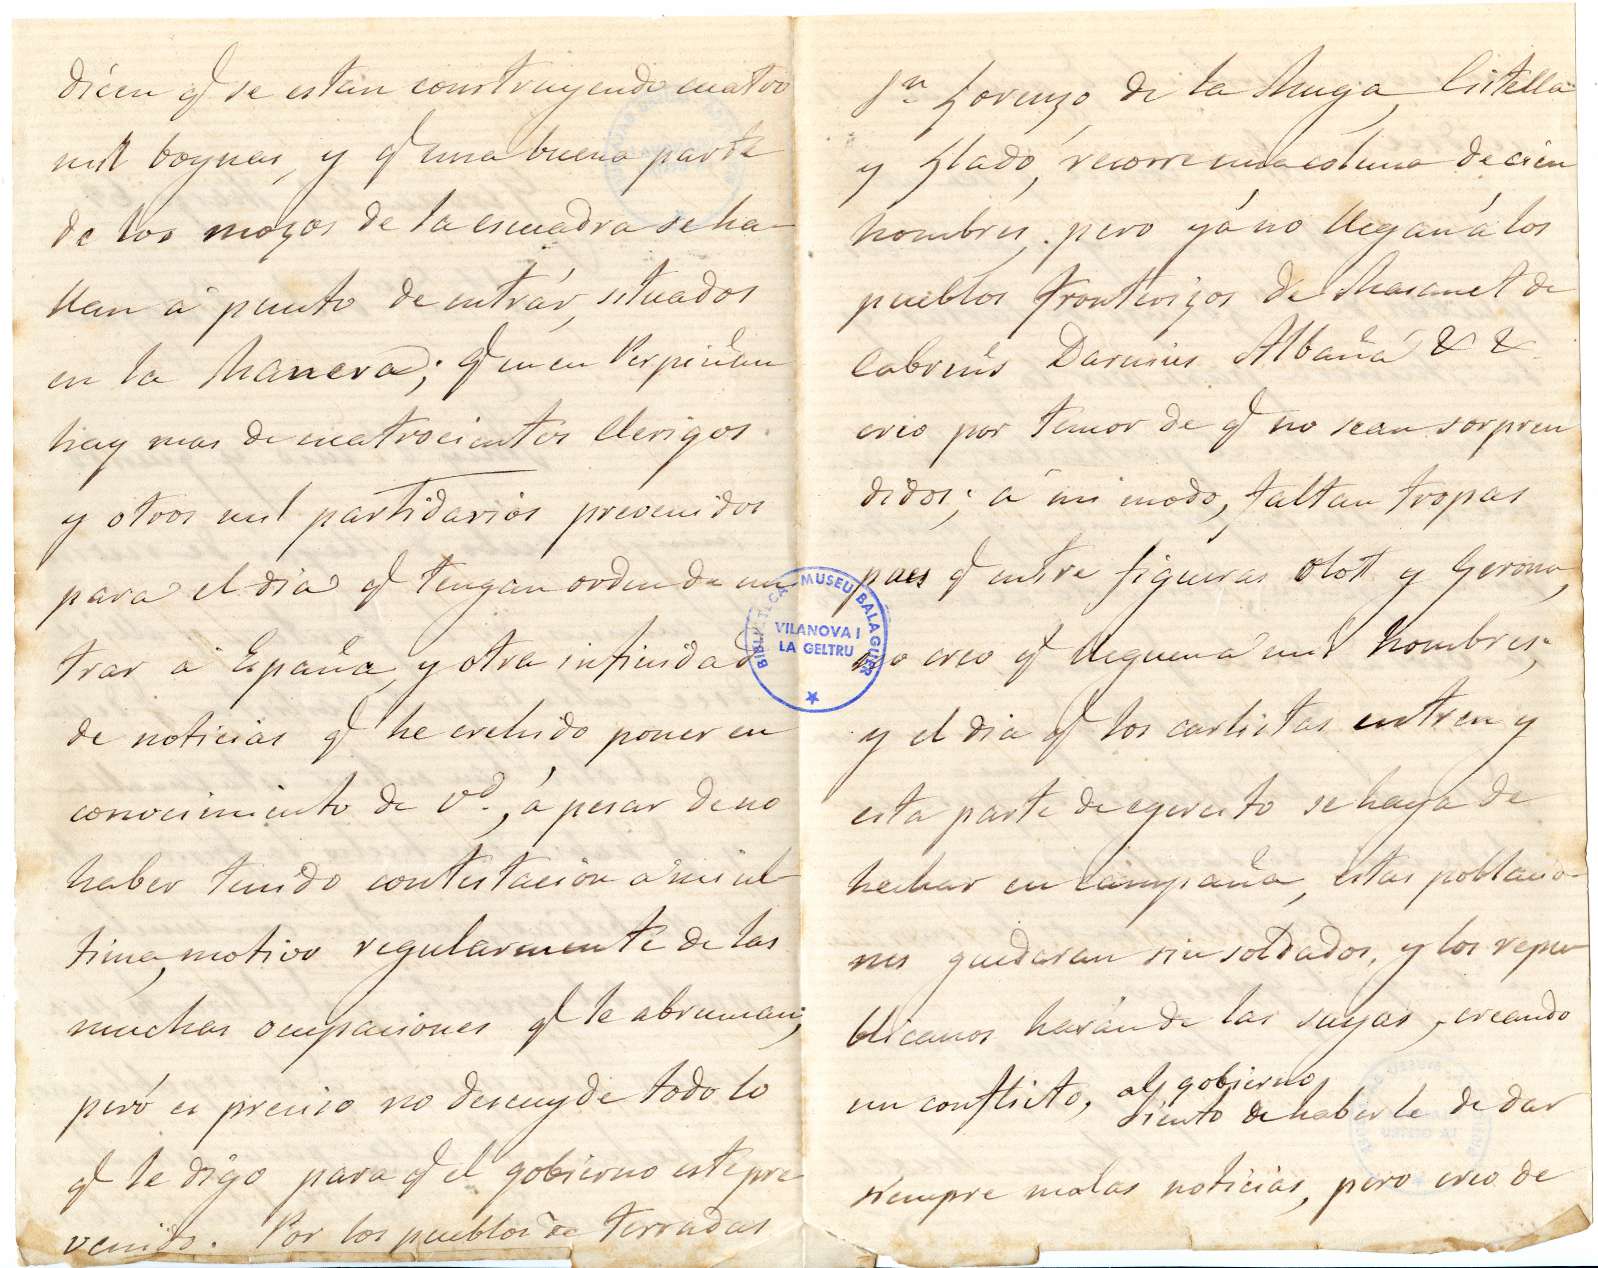 dicen q se estan construyendo cuatro
mil boynas, y q una buena parte
de los mozos de la escuadra se ha-
llan á punto de entrár, situados
en la Manera; q en Perpiñan
hay mas de cuatrocientos clerigos
y otros mil partidarios prevenidos
para el dia q tengan orden de en
trar á España, y otra infinidad
de noticias q he crehido poner en
conocimiento de Vd., á pesar de no
haber tenido contestación á mi ul-
tima, motivo regularmente de las
muchas ocupaciones q le abruman;
peró es preciso no descuyde todo lo
q le digo para q el gobierno este pre-
venido. Por los pueblos de Terradas
Sn Lorenzo de la Muga, Cistella
y Lladó, recorre una coluna de cien
hombres, pero yá no llegan á los
pueblos fronterizos de Masanet de
Cabreñs Darnius Albañá & &
creo por temor de q no sean sorpren
didos; á mi modo, faltan tropas
pues q entre figueras olot y Gerona,
no creo q lleguen á mil hombres;
y el dia q los carlistas entren y
esta parte de egercito se haya de
hechar en campaña, estas poblacio-
nes quedaran sin soldados, y los repu-
blicanos harán de las suyas, creando
un conflicto, al gobierno
siento de haberle de dar
siempre malas noticias, pero creo de
BIBLIOTECA MUSEU BALAGUER
VILANOVA I
LA GELTRU